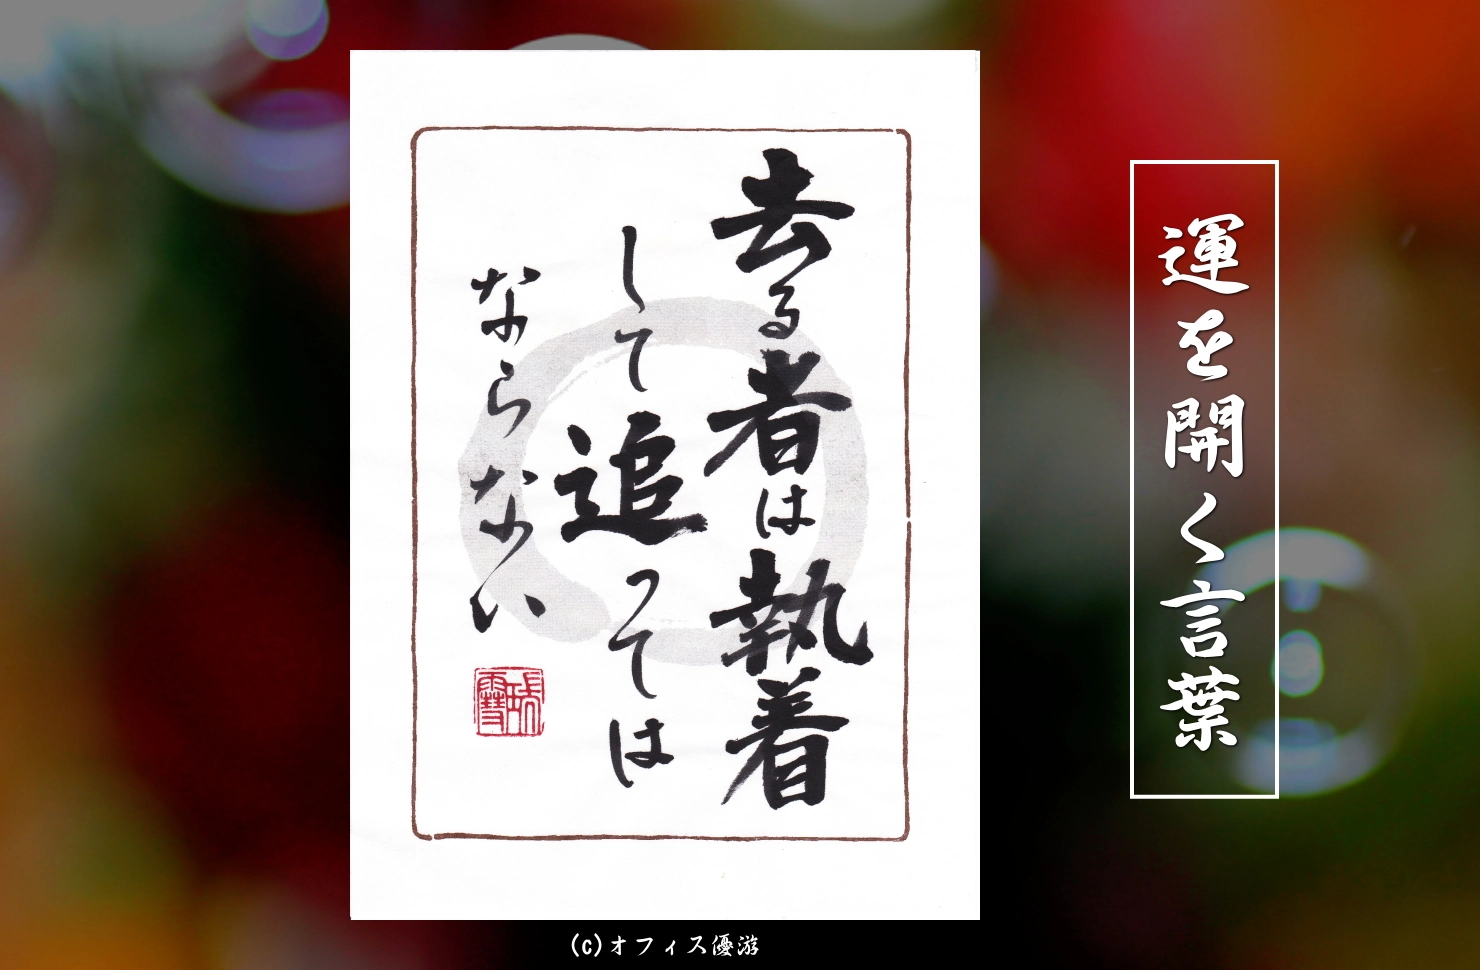 去る者は執着
して追っては
ならない
運を開く言葉
(c)オフィス優游